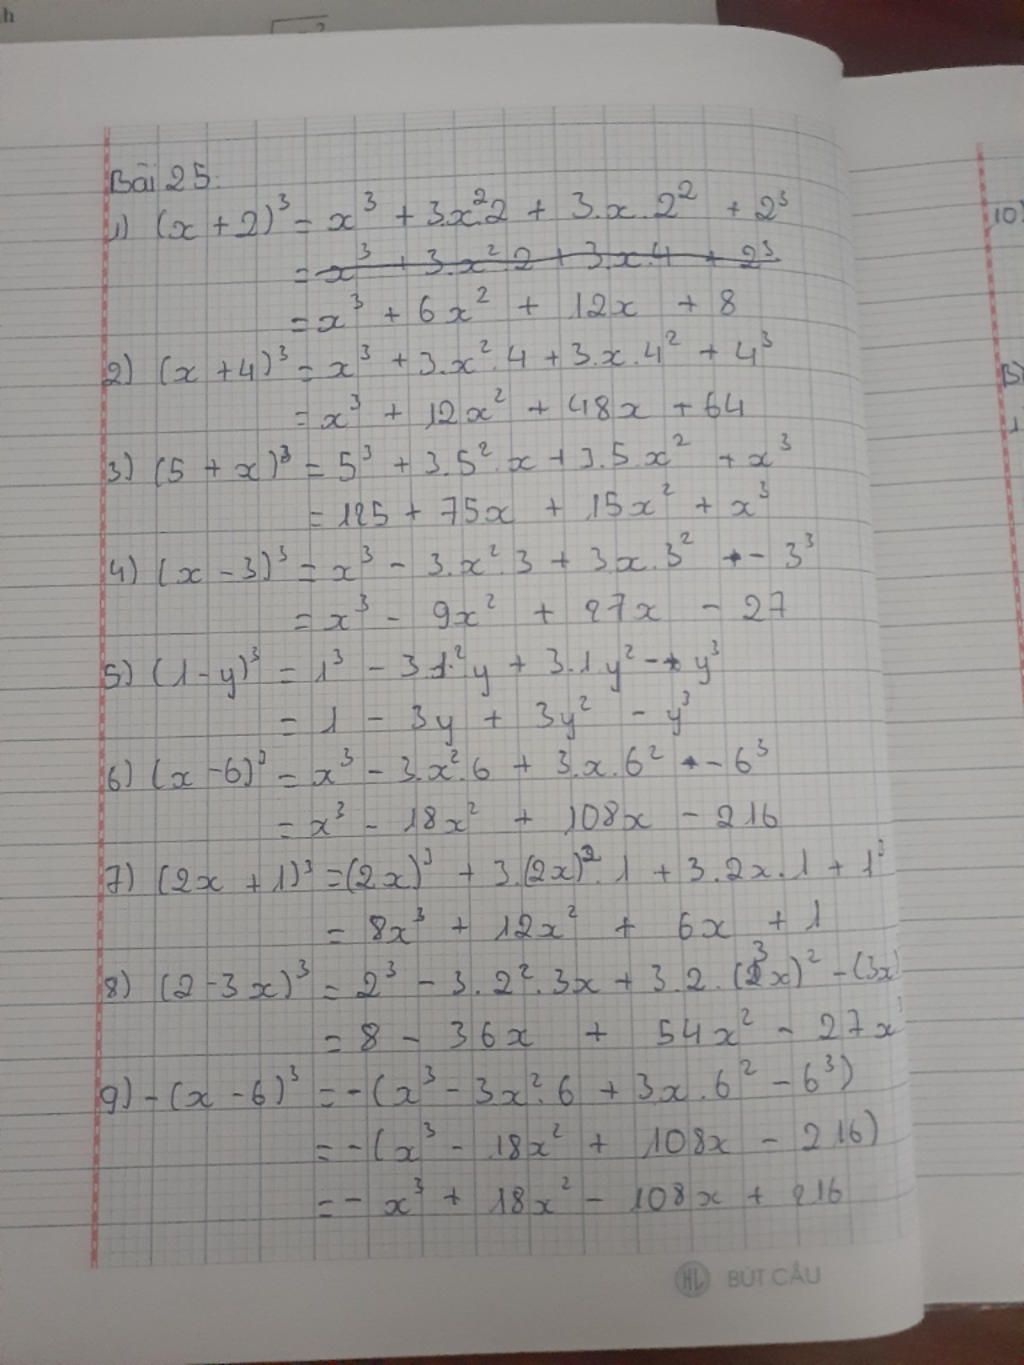 h
Bài 25.
1) (x + 2)³ = x³ + 3.x².2 + 3.x.2² + 2³
= x³ + 3.x².2 + 3.x.4 + 2³
= x³ + 6x² + 12x + 8
2) (x + 4)³ = x³ + 3.x².4 + 3.x.4² + 4³
= x³ + 12x² + 48x + 64
3) (5 + x)³ = 5³ + 3.5².x + 3.5.x² + x³
= 125 + 75x + 15x² + x³
4) (x - 3)³ = x³ - 3.x².3 + 3.x.3² - 3³
= x³ - 9x² + 27x - 27
5) (1 - y)³ = 1³ - 3.1².y + 3.1.y² - y³
= 1 - 3y + 3y² - y³
6) (x - 6)³ = x³ - 3.x².6 + 3.x.6² - 6³
= x³ - 18x² + 108x - 216
7) (2x + 1)³ = (2x)³ + 3.(2x)².1 + 3.2x.1 + 1³
= 8x³ + 12x² + 6x + 1
8) (2 - 3x)³ = 2³ - 3.2².3x + 3.2.(3x)² - (3x)
= 8 - 36x + 54x² - 27x³
9) -(x - 6)³ = -(x³ - 3x².6 + 3x.6² - 6³)
= -(x³ - 18x² + 108x - 216)
= - x³ + 18x² - 108x + 216
HL BÚT CẦU
10)
1